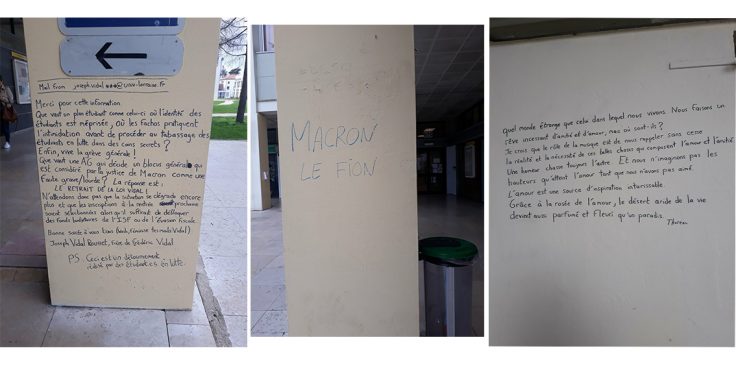 Mail From joseph.vidal @univ-lorraine.fr
Merci pour cette information.
Que vaut un plan étudiant comme celui-ci où l'identité des
étudiants est méprisée, où les fachos pratiquent
l'intimidation avant de procéder au tabassage des
étudiants en lutte dans des coins secrets?
Enfin, vive la grève générale!
Que vaut une AG qui décide un blocus général qui
est considéré par la justice de Macron comme une
faute grave/lourde? La réponse est:
LE RETRAIT DE LA LOI VIDAL!
N'attendons donc pas que la situation se dégrade encore
plus et que les inscriptions à la rentrée prochaine
soient sélectionnées alors qu'il suffirait de débloquer
des fonds budgétaires de l'ISF ou de l'évasion fiscale.
Bonne soirée à vous tous
Joseph Vidal Rousset, frère de Frédéric Vidal
PS Ceci est un détournement
réalisé par des étudiant.e.s en lutte.
MACRON
LE FION
Quel monde étrange que celui dans lequel nous vivons. Nous faisons un
rêve incessant d'amitié et d'amour, mais où sont-ils?
Je crois que le rôle de la musique est de nous rappeler sans cesse
la réalité et la nécessité de ces belles choses qui composent l'amour et l'amitié.
Une humeur chasse toujours l'autre. Et nous n'imaginons pas les
hauteurs qu'atteint l'amour tant que nous n'avons pas aimé.
L'amour est une source d'aspiration intarissable.
Grâce à la rosée de l'amour, le désert aride de la vie
devient aussi parfumé et fleuri qu'un paradis.
Thoreau